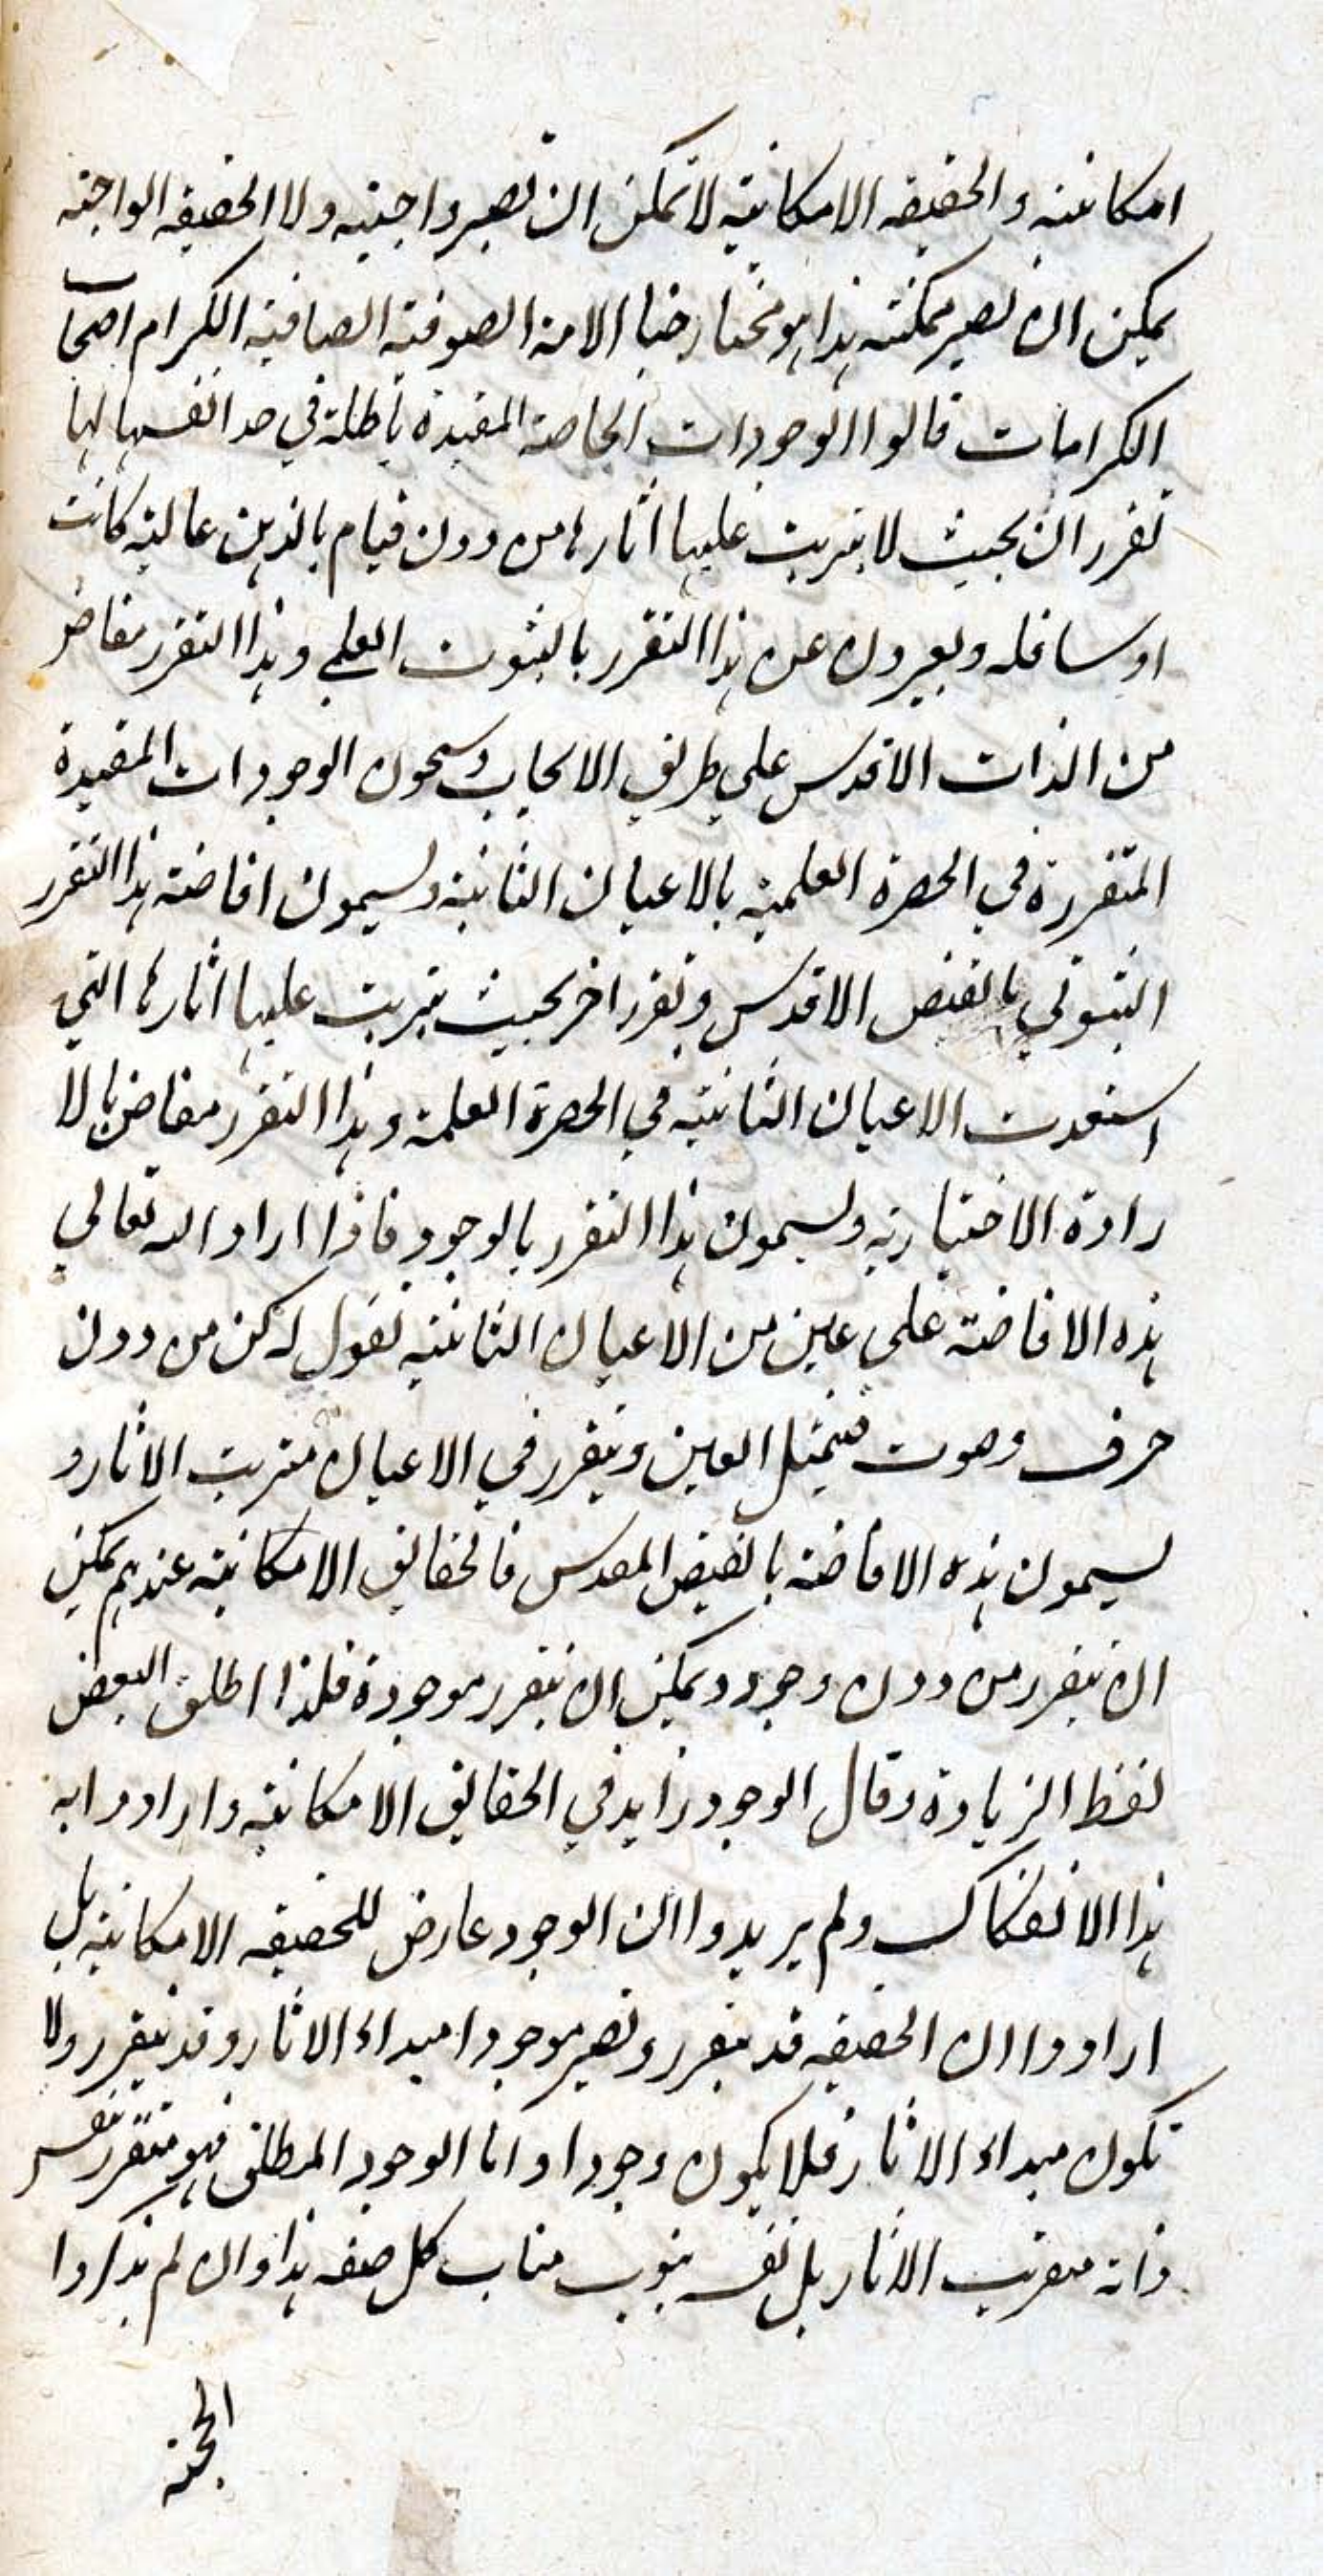 امكانية والحقيقه الامكانية لا تمكن ان تصير واجبيه ولا الحقيقه الواجبة
يمكن ان تصير ممكنته هذا هو مختار خيار الامة الصوفية الصافية الكرام اصحاب
الكرامات قالوا الوجودات الخاصة المقيدة باطلة في حد انفسها لها
تقرر ان بحيث لا يترتب عليها اثارها من دون قيام بالذهن عالية كانت
او سافله ويعبرون عن هذا التقرر بالثبوت العلمي وهذا التقرر مفاض
من الذات الاقدس علي طريق الايجاب ويسمون الوجودات المقيدة
المتقررة في الحضرة العلميه بالاعيان الثابتة ويسمون افاضة هذا التقرر
الثبوتي بالفيض الاقدس وتقرر اخر بحيث يترتب عليها اثارها التي
استعدت الاعيان الثابتة في الحضرة العلمية وهذا التقرر مفاض بالا
رادة الاختيارية ويسمون هذا التقرر بالوجود فاذا اراد الله تعالي
هذه الافاضة علي عين من الاعيان الثابتة تقول له كن من دون
حرف وصوت فيمتثل العين ويتقرر في الاعيان مترتب الاثار و
يسمون هذه الافاضة بالفيض المقدس فالحقايق الامكانية عندهم يمكن
ان يتقرر من دون وجود ويمكن ان يتقرر موجودة فلذا اطلق البعض
لفظ الزيادة وقال الوجود زايد في الحقايق الامكانية وارادوا به
هذا الانفكاك ولم يريدوا ان الوجود عارض للحقيقه الامكانية بل
ارادوا ان الحقيقه قد يتقرر وتصير موجودا مبداء الاثار وقد يتقرر ولا
تكون مبداء الاثار فلا يكون وجودا واما الوجود المطلق فهو متقرر بنفس
ذاته مترتب الاثار بل نفسه ينوب مناب كل صفه هذا وان لم يذكروا
الحجة